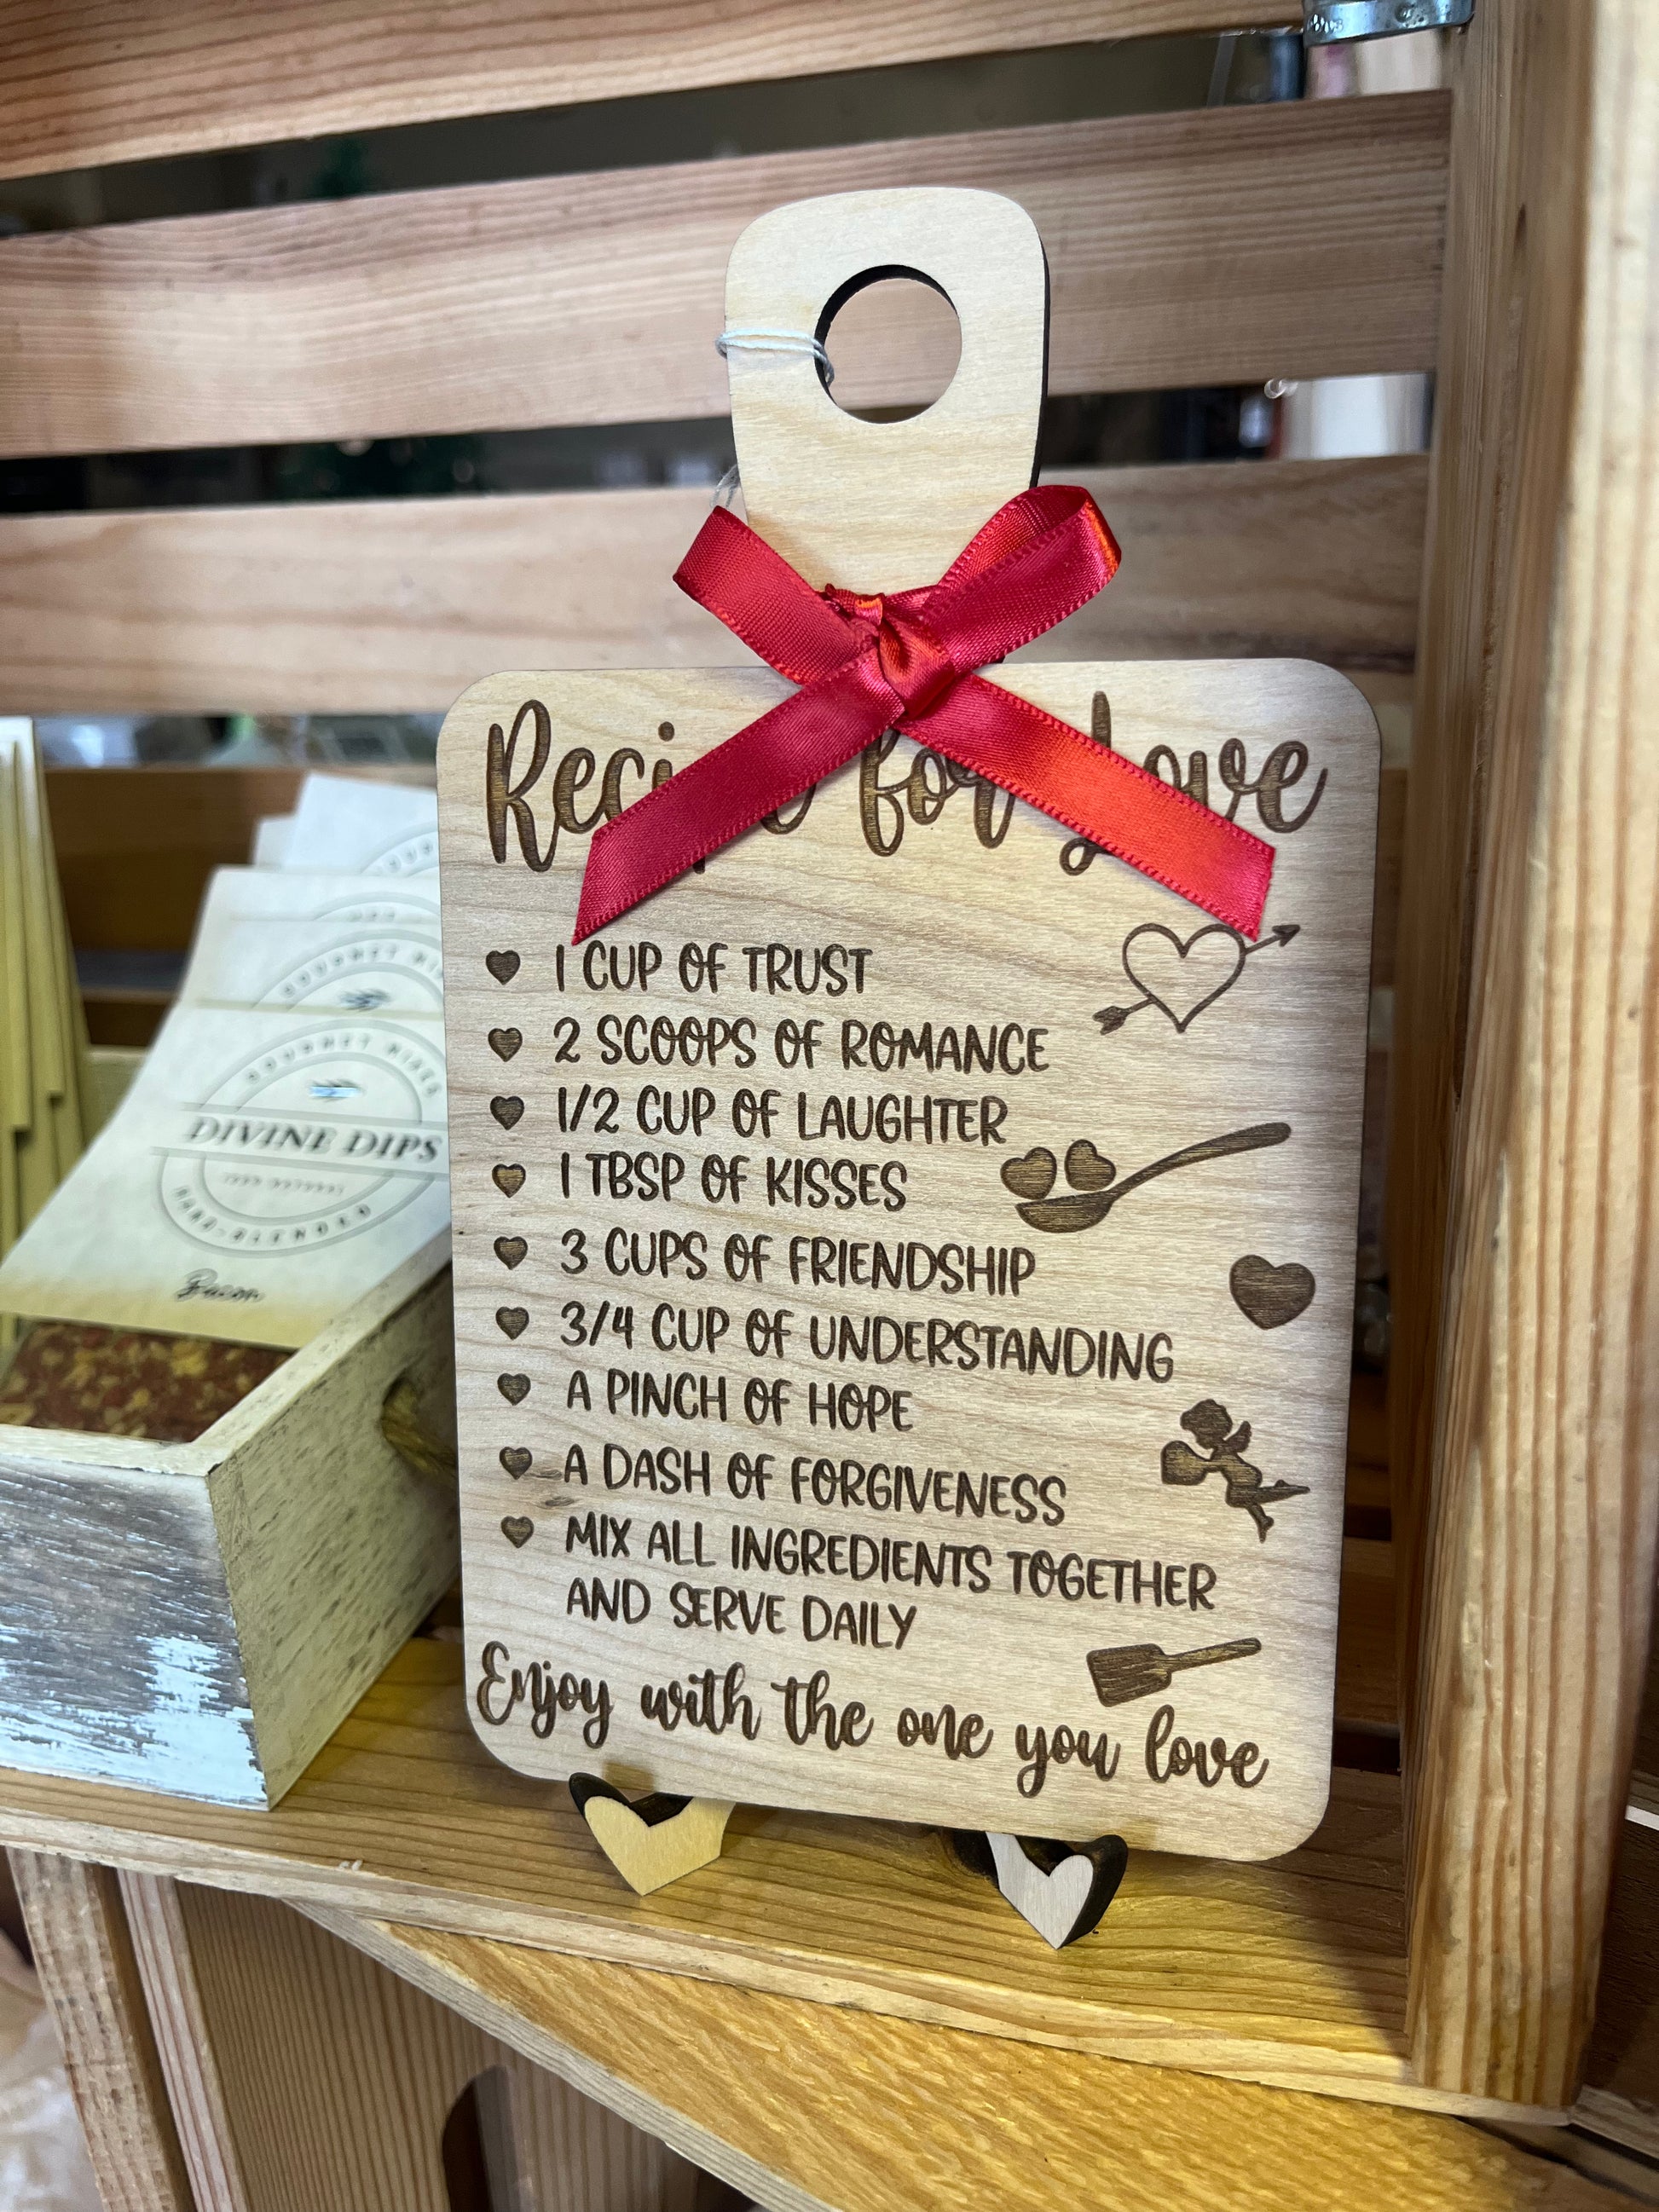 Recipe for Love
1 CUP OF TRUST
2 SCOOPS OF ROMANCE
1/2 CUP OF LAUGHTER
1 TBSP OF KISSES
3 CUPS OF FRIENDSHIP
3/4 CUP OF UNDERSTANDING
A PINCH OF HOPE
A DASH OF FORGIVENESS
MIX ALL INGREDIENTS TOGETHER
AND SERVE DAILY
Enjoy with the one you love
GOURMET MIXES
DIVINE DIPS
HAND-BLENDED
Bacon